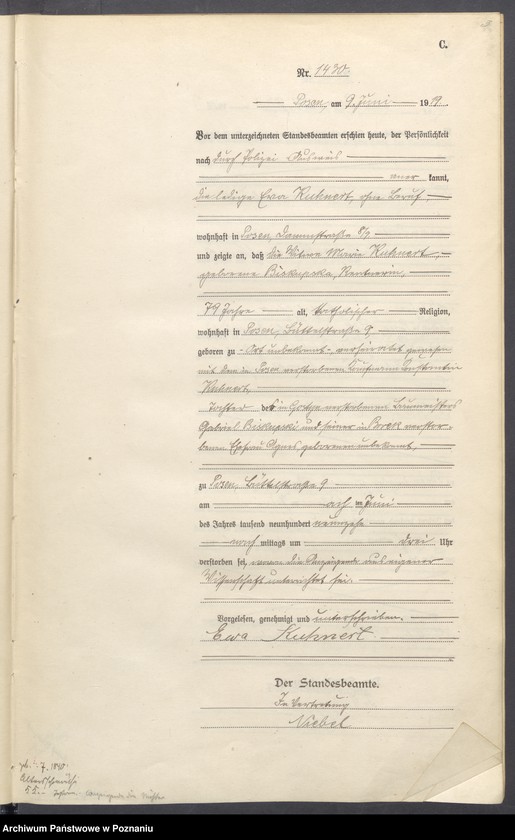 C.
Nr. 1430.
Posen, am 9. Juni 1919.
Vor dem unterzeichneten Standesbeamten erschien heute, der Persönlichkeit
nach durch Polizei Ausweis
aner kannt,
die ledige Ewa Kuhnert, ohne Beruf,
wohnhaft in Posen, Dammstraße 8/9
und zeigte an, daß die Witwe Marie Kuhnert,
geborene Biskupska, Rentnerin,
79 Jahre alt, katholischer Religion,
wohnhaft in Posen, Büttelstraße 9
geboren zu - Ort unbekannt -, verheiratet gewesen
mit dem in Posen verstorbenen Kaufmann Konstantin
Kuhnert,
Tochter des in verstorbenen Baumeisters
Gabriel Biskupski und seiner in Borek verstor-
benen Ehefrau Agnes, geborenen unbekannt,
zu Posen, Büttelstraße 9
am acht en Juni
des Jahres tausend neunhundert neunzehn
nach mittags um drei Uhr
verstorben sei, wovon die Anzeigende aus eigener
Wissenschaft unterrichtet sei.
Vorgelesen, genehmigt und unterschrieben.
Ewa Kuhnert
Der Standesbeamte.
In Vertretung
Niebel
geb. 7. 1840
Altersschwäche
55
Archiwum Państwowe w Poznaniu